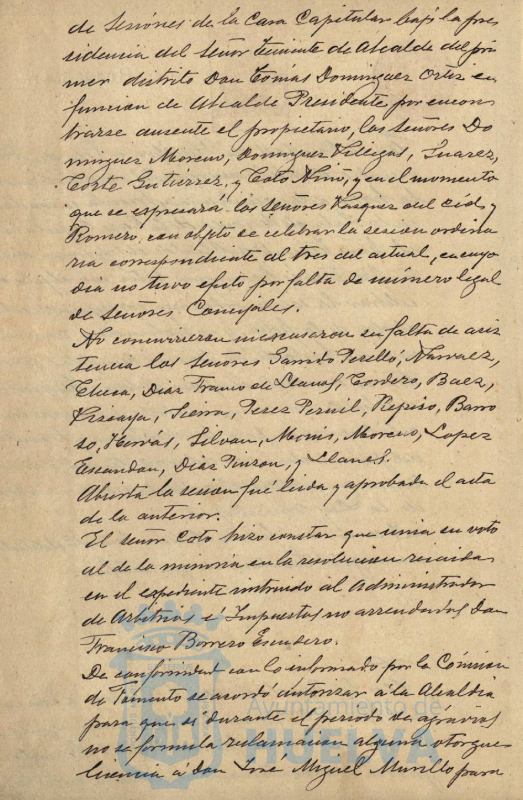 de Sesiones de la Casa Capitular bajo la pre
sidencia del Señor Teniente de Alcalde del pri
mer distrito Don Tomás Dominguez Ortiz en
funcion de Alcalde Presidente por encon
trarse ausente el propietario, los señores Do
minguez Moreno, Dominguez Villegas, Suarez,
Corte Gutierrez, y Coto Niño, y en el momento
que se espresará los señores Vasquez del Cid, y
Romero, con objeto de celebrar la sesion ordina
ria correspondiente al tres del actual, en cuyo
dia no tuvo efecto por falta de número legal
de señores Concejales.
No concurrieron ni escusaron su falta de asis
tencia los señores Garrido Perelló, Narvaez,
Checa, Diaz Franco de Llanos, Cordero, Baez,
Vizcaya, Sierra, Perez Pernil, Repiso, Barro
so, Hervás, Silvan, Monis, Moreno, Lopez
Escandon, Diaz Pinzon, y Llanes.
Abierta la sesion fué leida y aprobada el acta
de la anterior.
El señor Coto hizo constar que unia su voto
al de la minoria en la resolucion recaida
en el expediente instruido al Administrador
de Arbitrios é Impuestos no arrendados Don
Francisco Borrero Escudero.
De conformidad con lo informado por la Comision
de Fomento se acordó autorizar á la Alcaldia
para que si durante el periodo de agravios
no se formula reclamacion alguna otorgue
licencia á don José Miguel Murillo para
Ayuntamiento de
HUELVA